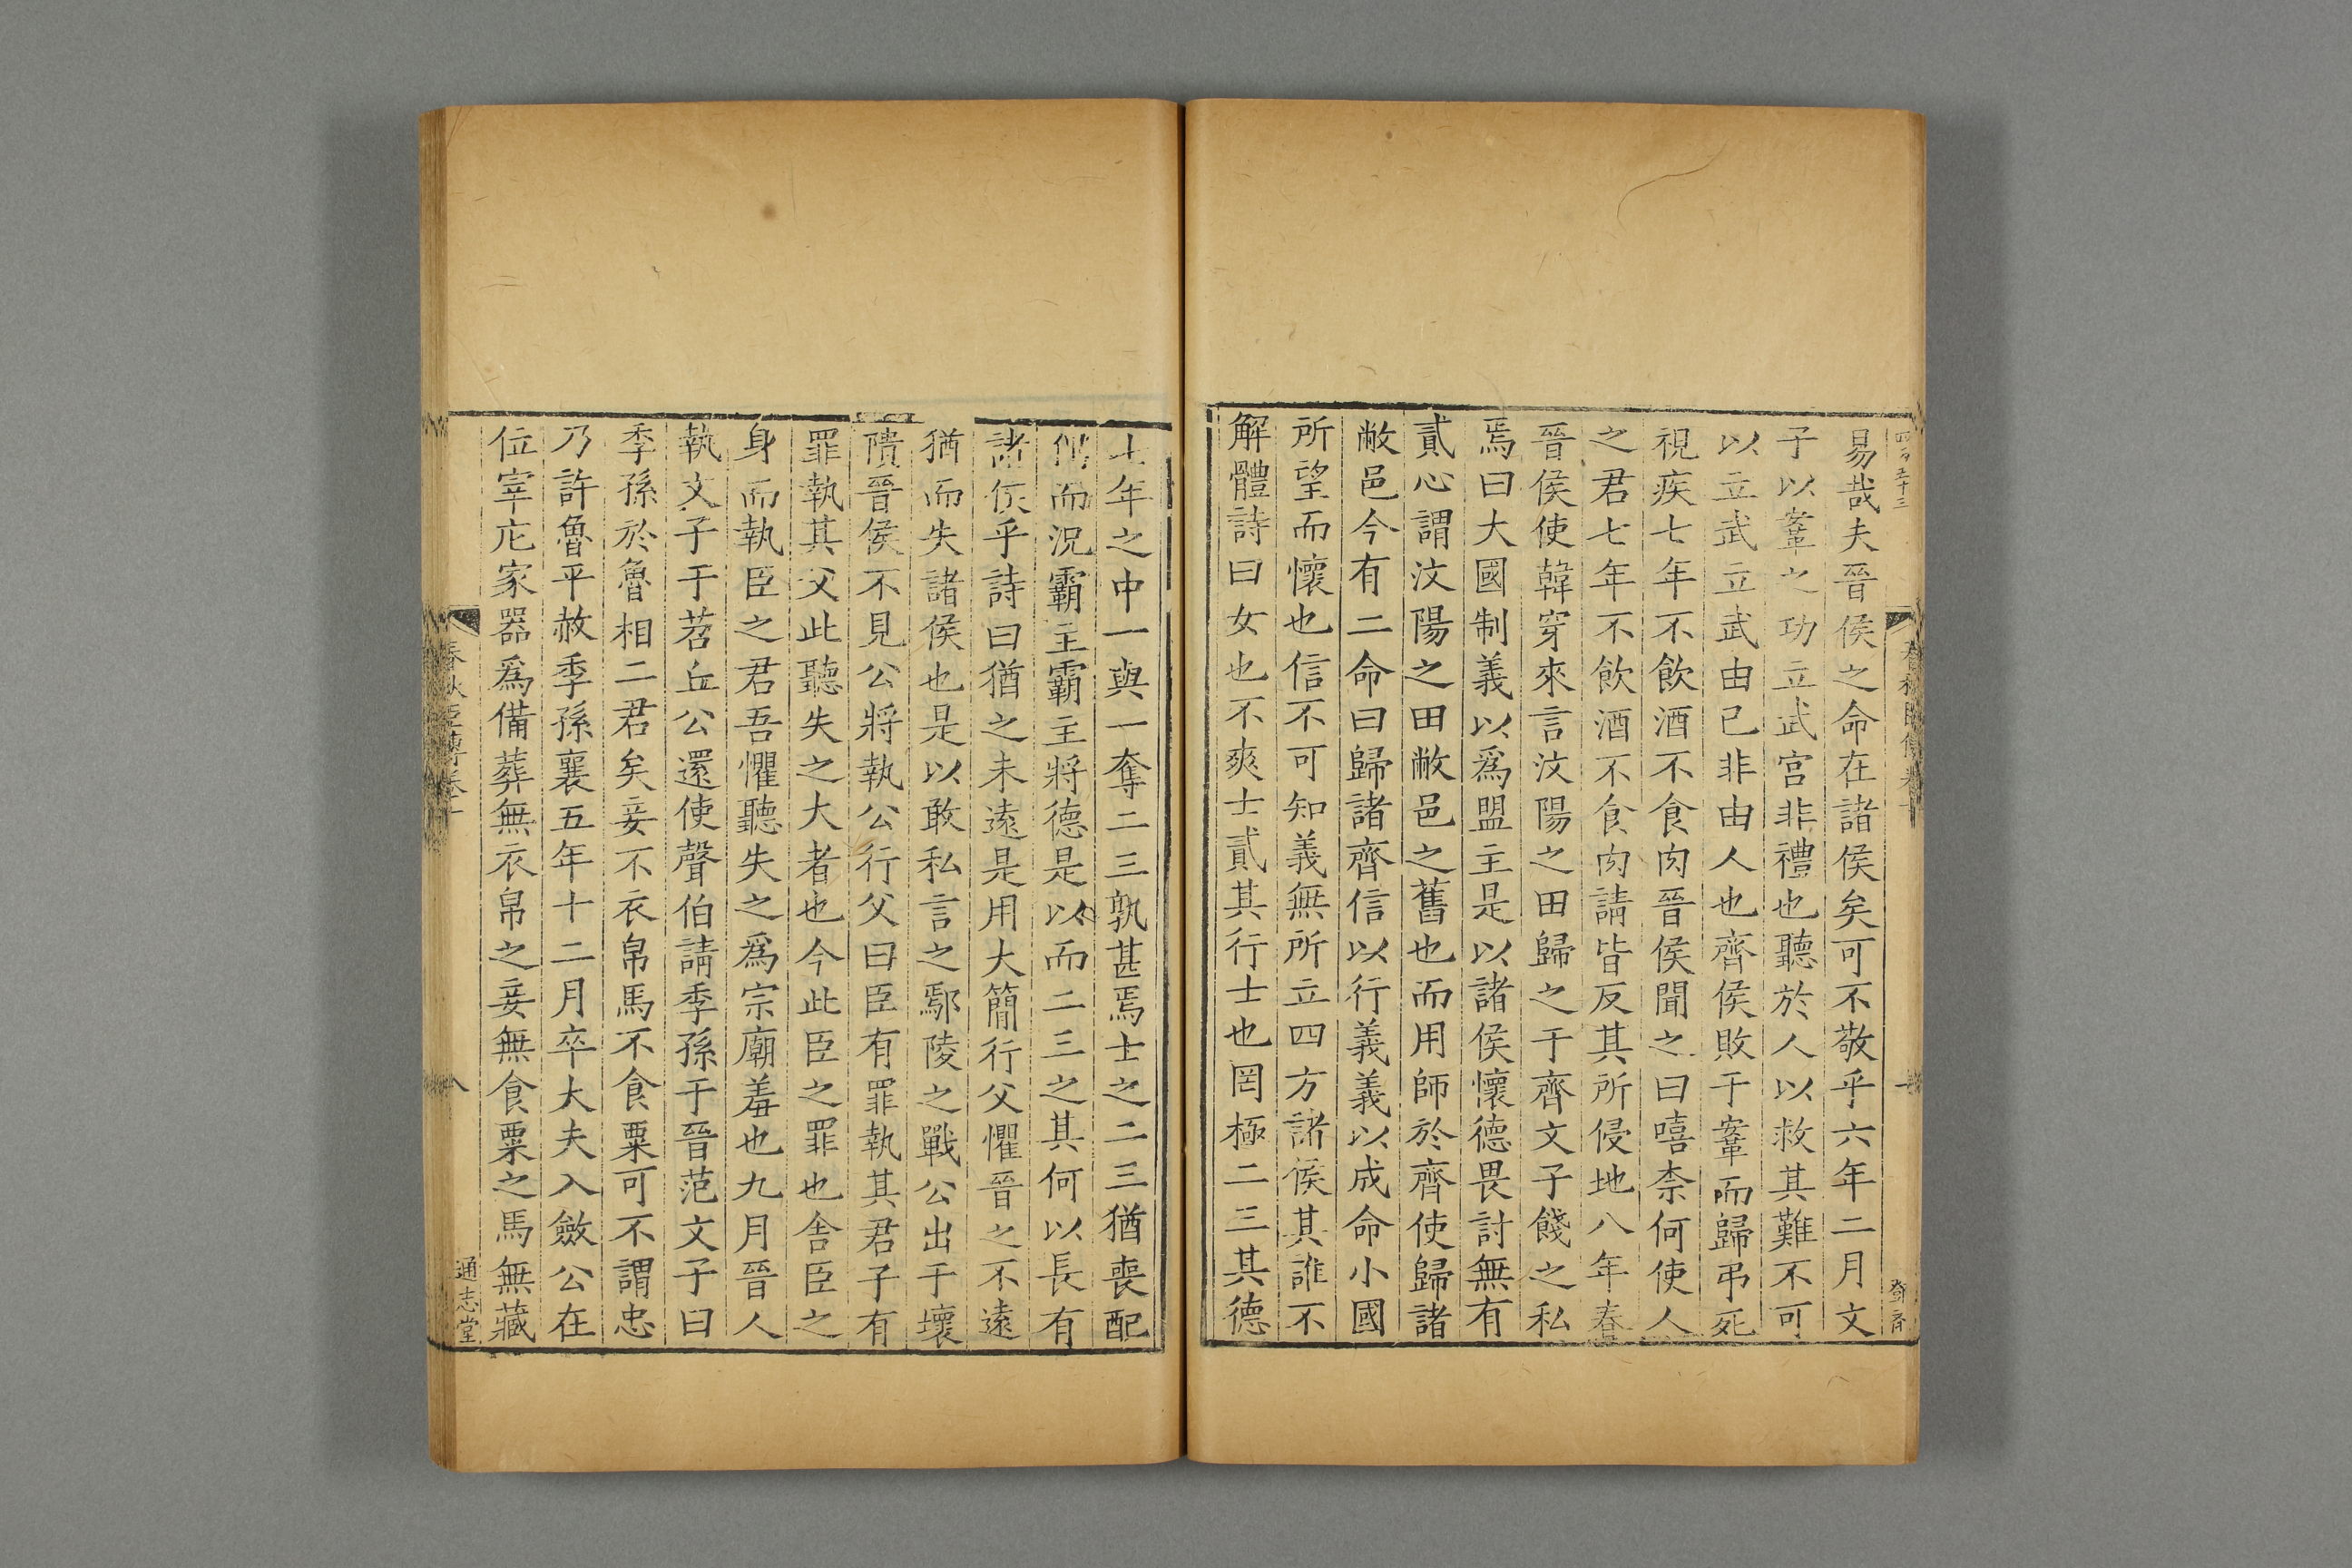 四百五十三
春秋臣傳卷
鄧
易哉夫晉侯之命在諸侯矣可不敬乎六年二月文
子以鞌之功立武宮非禮也聽於人以救其難不可
以立武立武由己非由人也齊侯敗于鞌而歸弔死
視疾七年不飲酒不食肉晉侯聞之曰嘻柰何使人
之君七年不飲酒不食肉請皆反其所侵地八年春
晉侯使韓穿來言汶陽之田歸之于齊文子餞之私
焉曰大國制義以爲盟主是以諸侯懷德畏討無有
貳心謂汶陽之田敝邑之舊也而用師於齊使歸諸
敝邑今有二命曰歸諸齊信以行義義以成命小國
所望而懷也信不可知義無所立四方諸侯其誰不
解體詩曰女也不爽士貳其行士也罔極二三其德
七年之中一與一奪二三孰甚焉士之二三猶喪配
偶而況霸主霸主將德是以而二三之其何以長有
諸侯乎詩曰猶之未遠是用大簡行父懼晉之不遠
猶而失諸侯也是以敢私言之鄢陵之戰公出于壞
隤晉侯不見公將執公行父曰臣有罪執其君子有
罪執其父此聽失之大者也今此臣之罪也舍臣之
身而執臣之君吾懼聽失之爲宗廟羞也九月晉人
執文子于苕丘公還使聲伯請季孫于晉范文子曰
季孫於魯相二君矣妾不衣帛馬不食粟可不謂忠
乃許魯平赦季孫襄五年十二月卒大夫入斂公在
位宰庀家器爲備葬無衣帛之妾無食粟之馬無藏
春秋臣傳卷十
八
通志堂